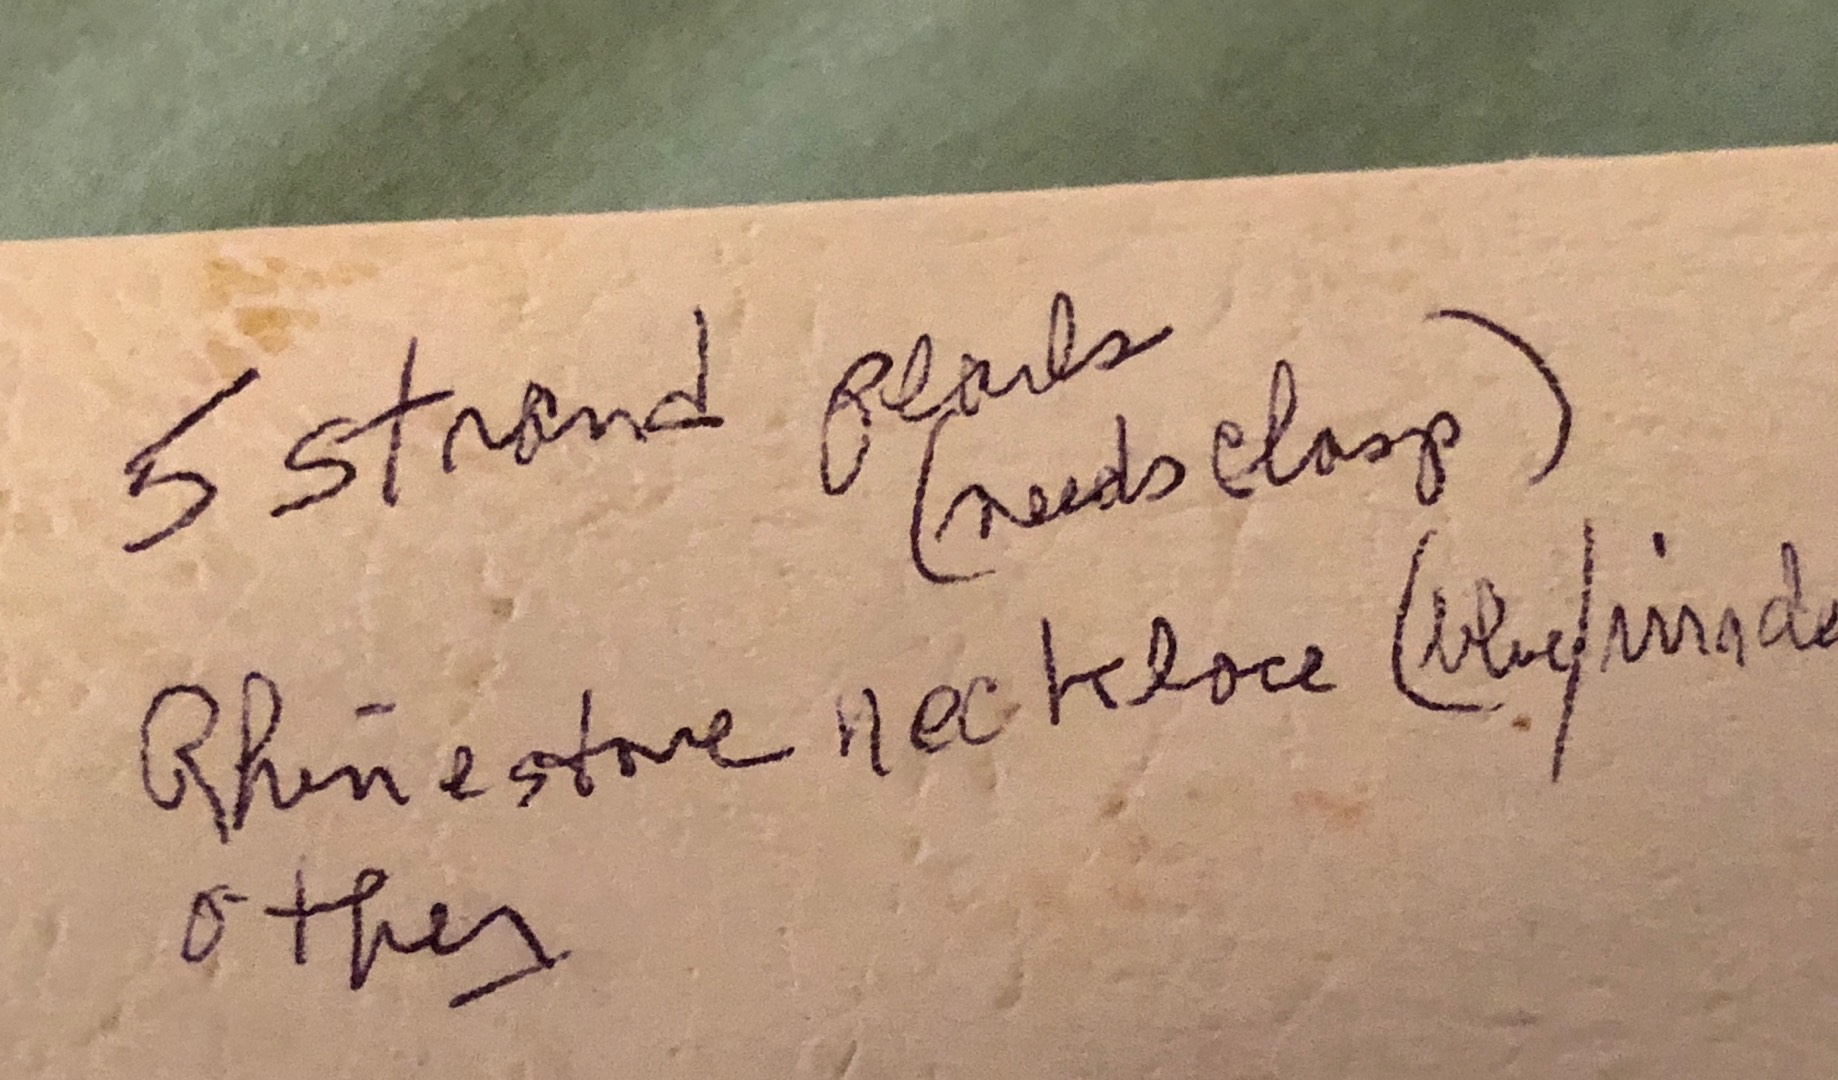 5 strand pearls
(needs clasp)
Rhinestone necklace (blue/
other